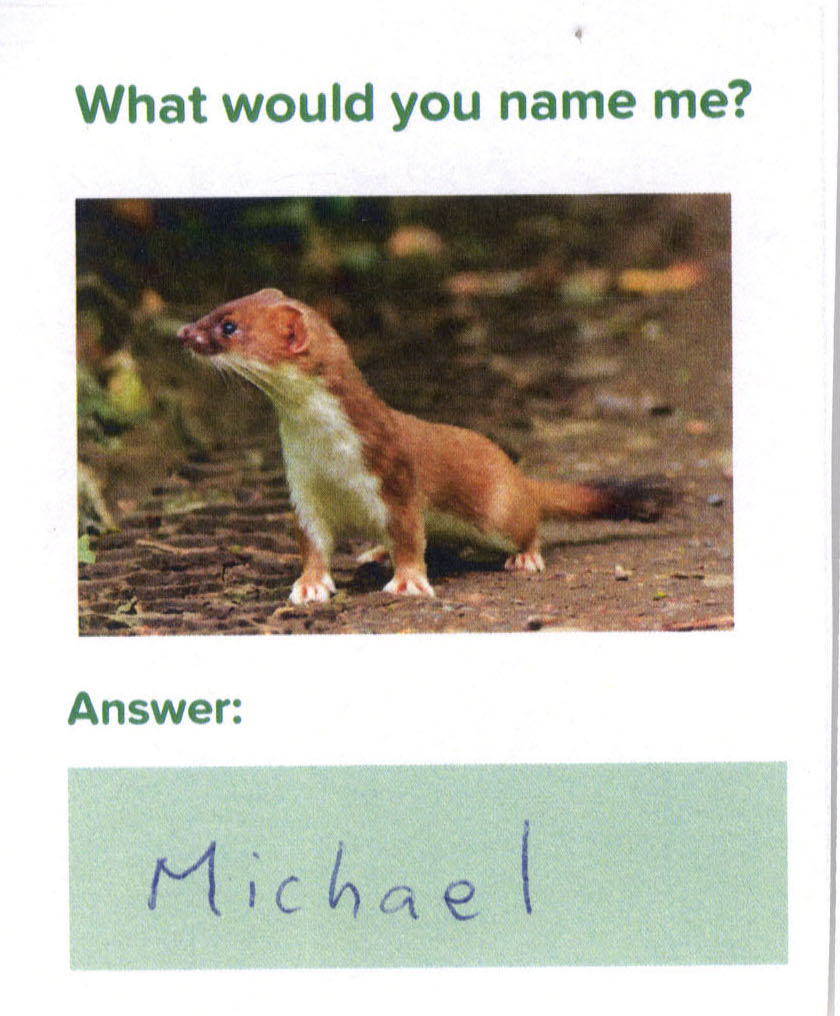 What would you name me?
Answer:
Michael